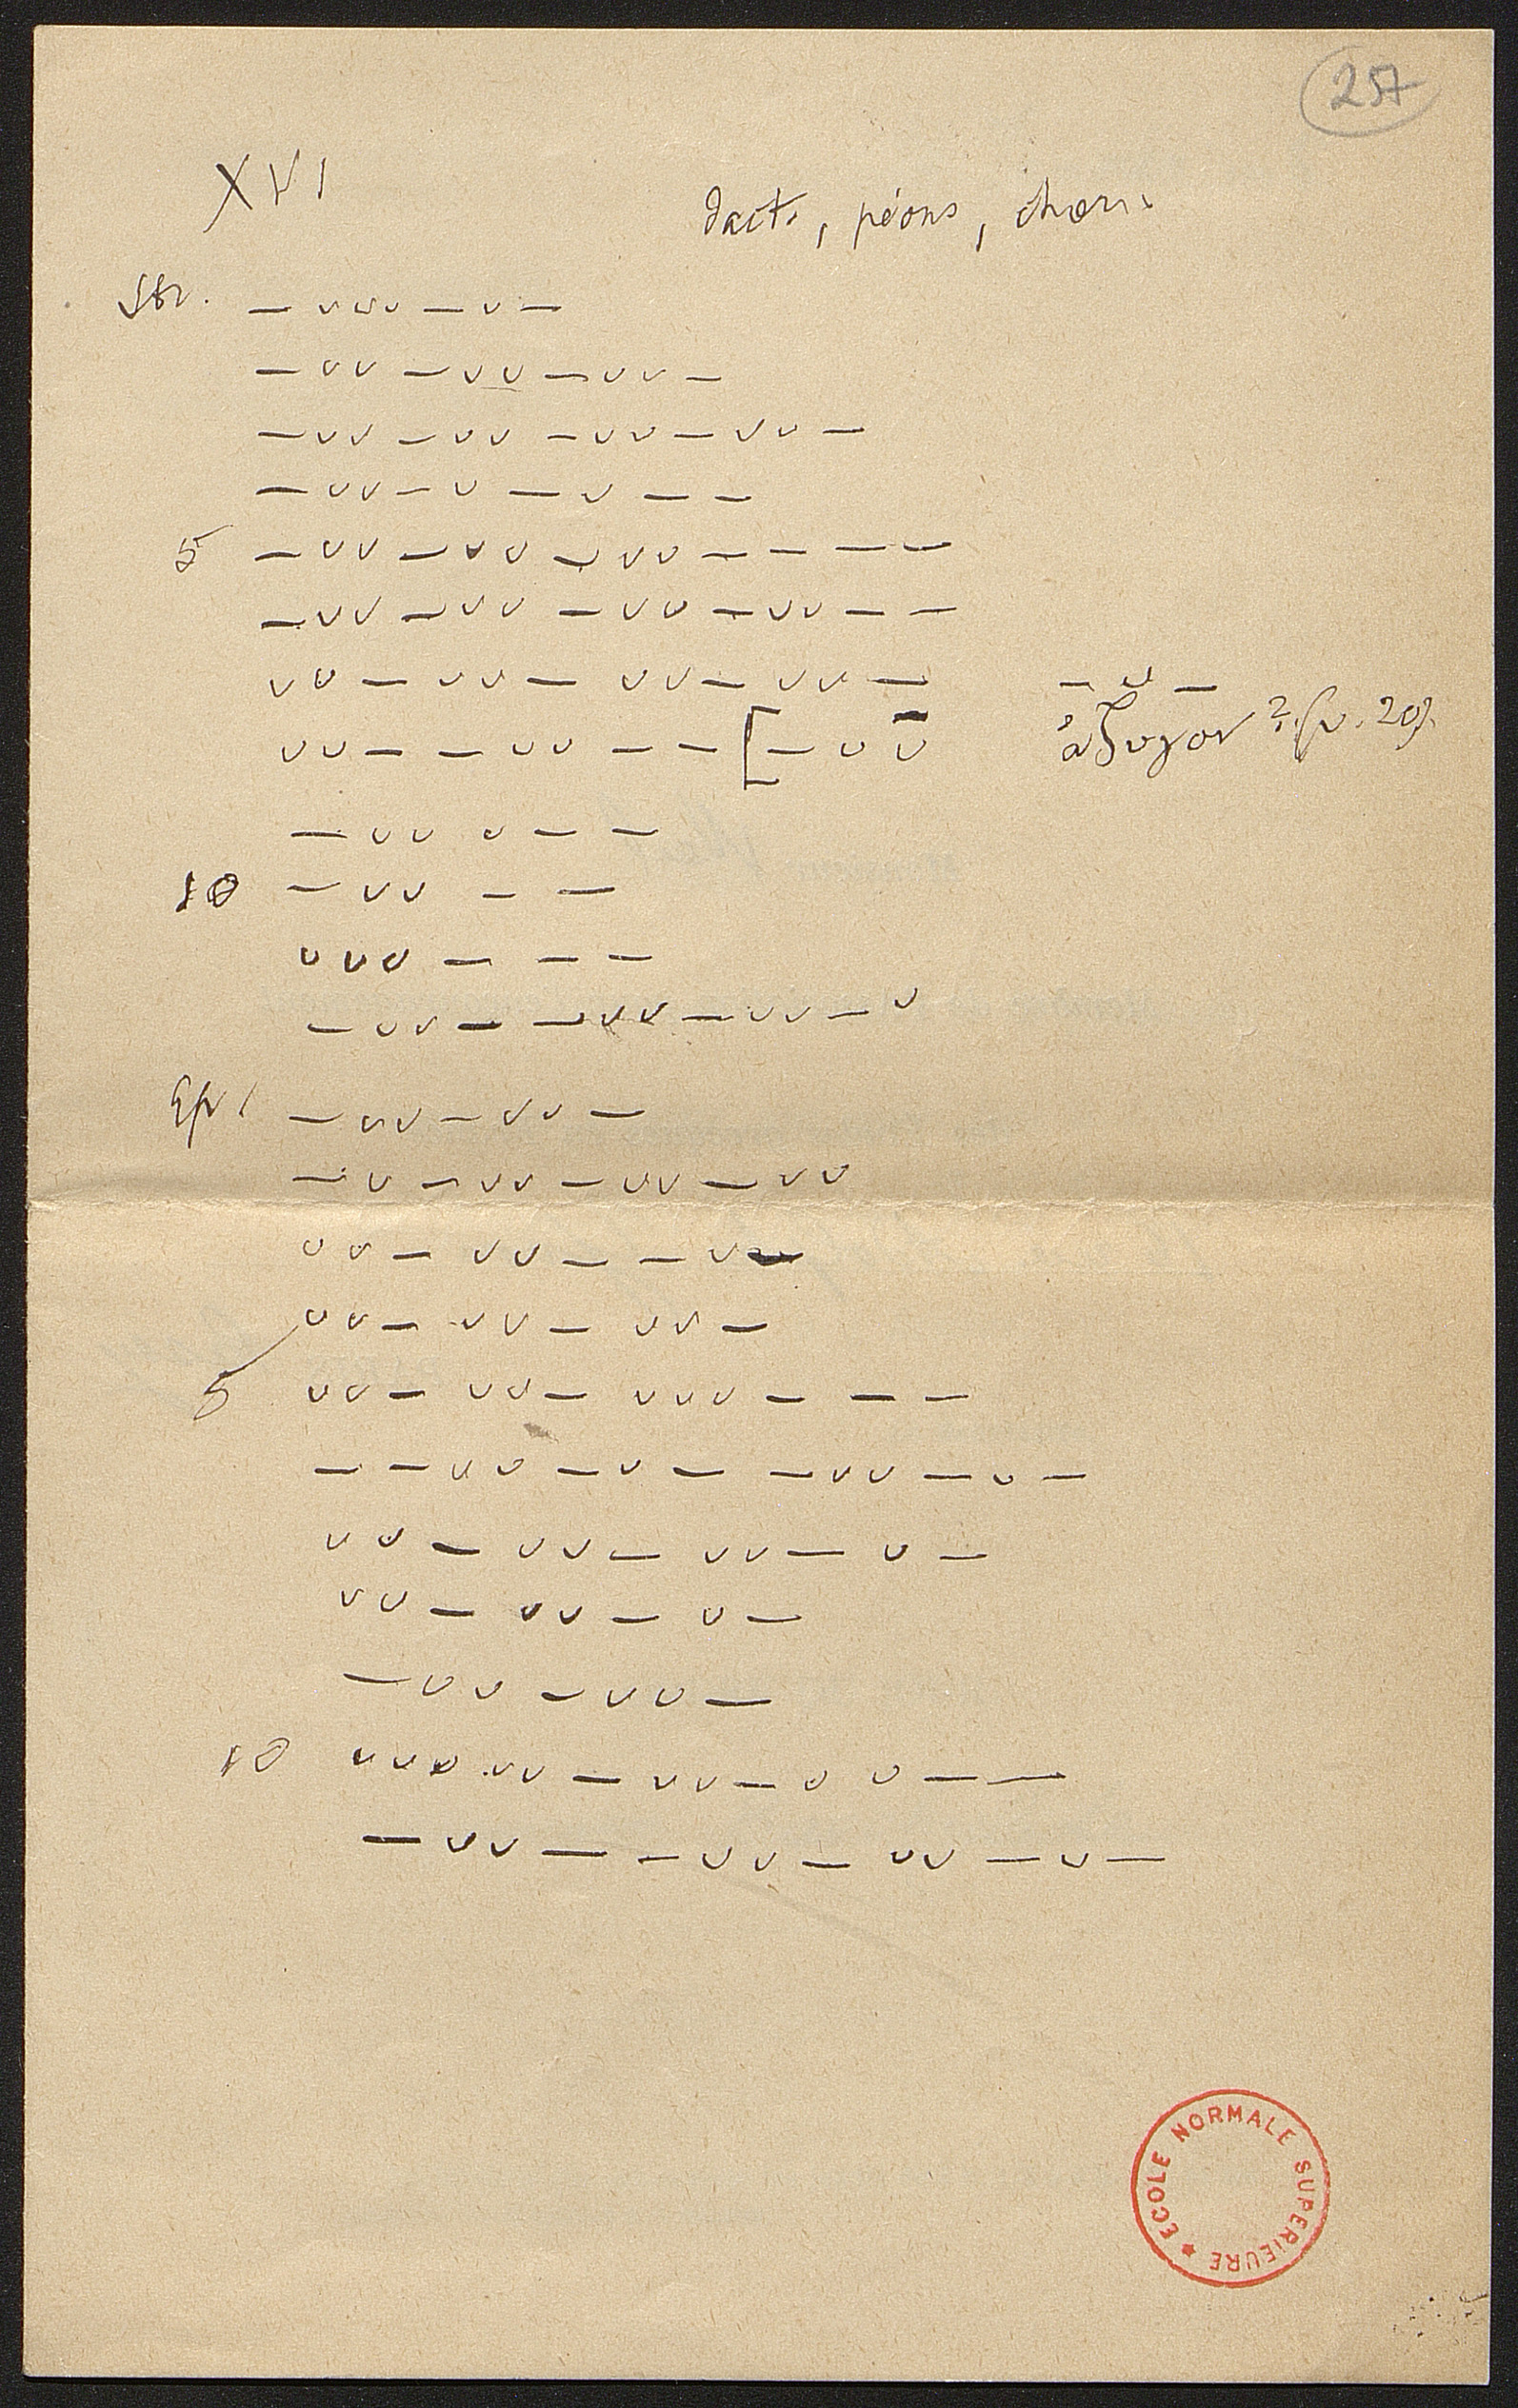 257
XVI dact., péons, chor.
Str. — ᴗ ᴗ ᴗ — ᴗ —
— ᴗ ᴗ — ᴗ ᴗ — ᴗ ᴗ —
— ᴗ ᴗ — ᴗ ᴗ — ᴗ ᴗ — ᴗ ᴗ —
— ᴗ ᴗ — ᴗ — ᴗ — —
5 — ᴗ ᴗ — ᴗ ᴗ — ᴗ ᴗ — — — —
— ᴗ ᴗ — ᴗ ᴗ — ᴗ ᴗ — ᴗ ᴗ — —
ᴗ ᴗ — ᴗ ᴗ — ᴗ ᴗ — ᴗ ᴗ — — ᴗ —
ᴗ ᴗ — — ᴗ ᴗ — — [ — ᴗ ᴗ̄ ἄζυγον
— ᴗ ᴗ ᴗ — —
10 — ᴗ ᴗ — —
ᴗ ᴗ ᴗ — — —
— ᴗ ᴗ — — ᴗ ᴗ — ᴗ ᴗ — ᴗ
Ep. — ᴗ ᴗ — ᴗ ᴗ —
— ᴗ — ᴗ ᴗ — ᴗ ᴗ — ᴗ ᴗ
ᴗ ᴗ — ᴗ ᴗ — — ᴗ —
ᴗ ᴗ — ᴗ ᴗ — ᴗ ᴗ —
5 ᴗ ᴗ — ᴗ ᴗ — ᴗ ᴗ ᴗ — — —
— — ᴗ ᴗ — ᴗ — — ᴗ ᴗ — ᴗ —
ᴗ ᴗ — ᴗ ᴗ — ᴗ ᴗ — ᴗ —
ᴗ ᴗ — ᴗ ᴗ — ᴗ —
— ᴗ ᴗ — ᴗ ᴗ —
10 ᴗ ᴗ ᴗ ᴗ ᴗ — ᴗ ᴗ — ᴗ ᴗ — —
— ᴗ ᴗ — — ᴗ ᴗ — ᴗ ᴗ — ᴗ —
ECOLE NORMALE SUPERIEURE